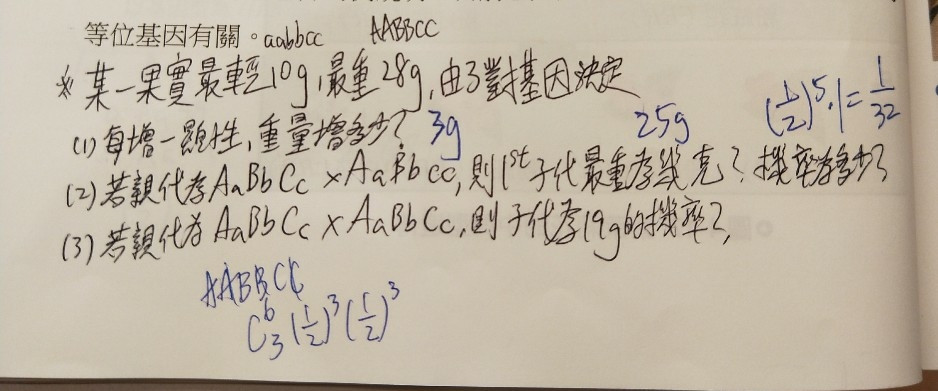 等位基因有關。aabbcc AABBCC
* 某一果實最輕10g,最重28g,由3對基因決定
(1) 每增一顯性,重量增多少? 3g 25g (1/2)^5·1=1/32
(2) 若親代為AaBbCc×AaBbcc,則1st子代最重為幾克?機率為多少?
(3) 若親代為AaBbCc×AaBbCc,則子代為19g的機率?,
AABBCC
C^6_3(1/2)^3(1/2)^3